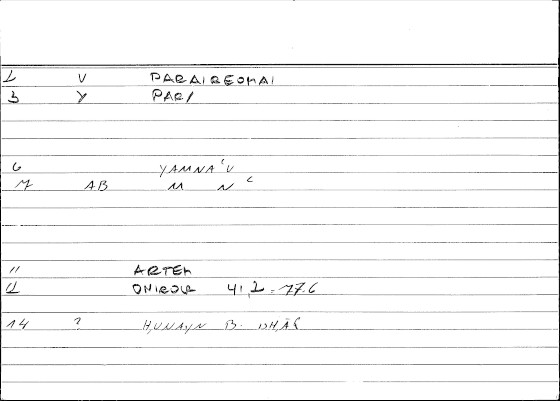 1 V PARAIREOMAI
3 Y PAR/
6 YAMNA'U
7 AB M N c
11 ARTEM
12 ONIROCR 41,2 = 77.6
14 ? HUNAYN B. ISHĀQ